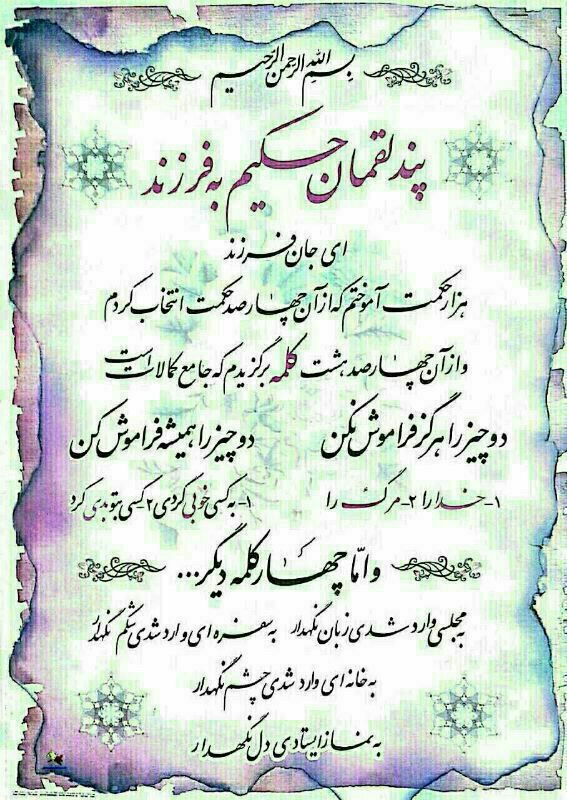 بسم الله الرحمن الرحیم
پند لقمان حکیم به فرزند
ای جان فرزند
هزار حکمت آموختم که از آن چهارصد حکمت انتخاب کردم
و از آن چهارصد هشت کلمه برگزیدم که جامع کمالات است
دو چیز را هرگز فراموش نکن دو چیز را همیشه فراموش کن
۱- خدا را ۲- مرگ را ۱- به کسی خوبی کردی ۲ کسی بتو بدی کرد
و اما چهار کلمه دیگر...
به مجلسی وارد شدی زبان نگهدار به سفره ای وارد شدی شکم نگهدار
به خانه ای وارد شدی چشم نگهدار
به نماز ایستادی دل نگهدار